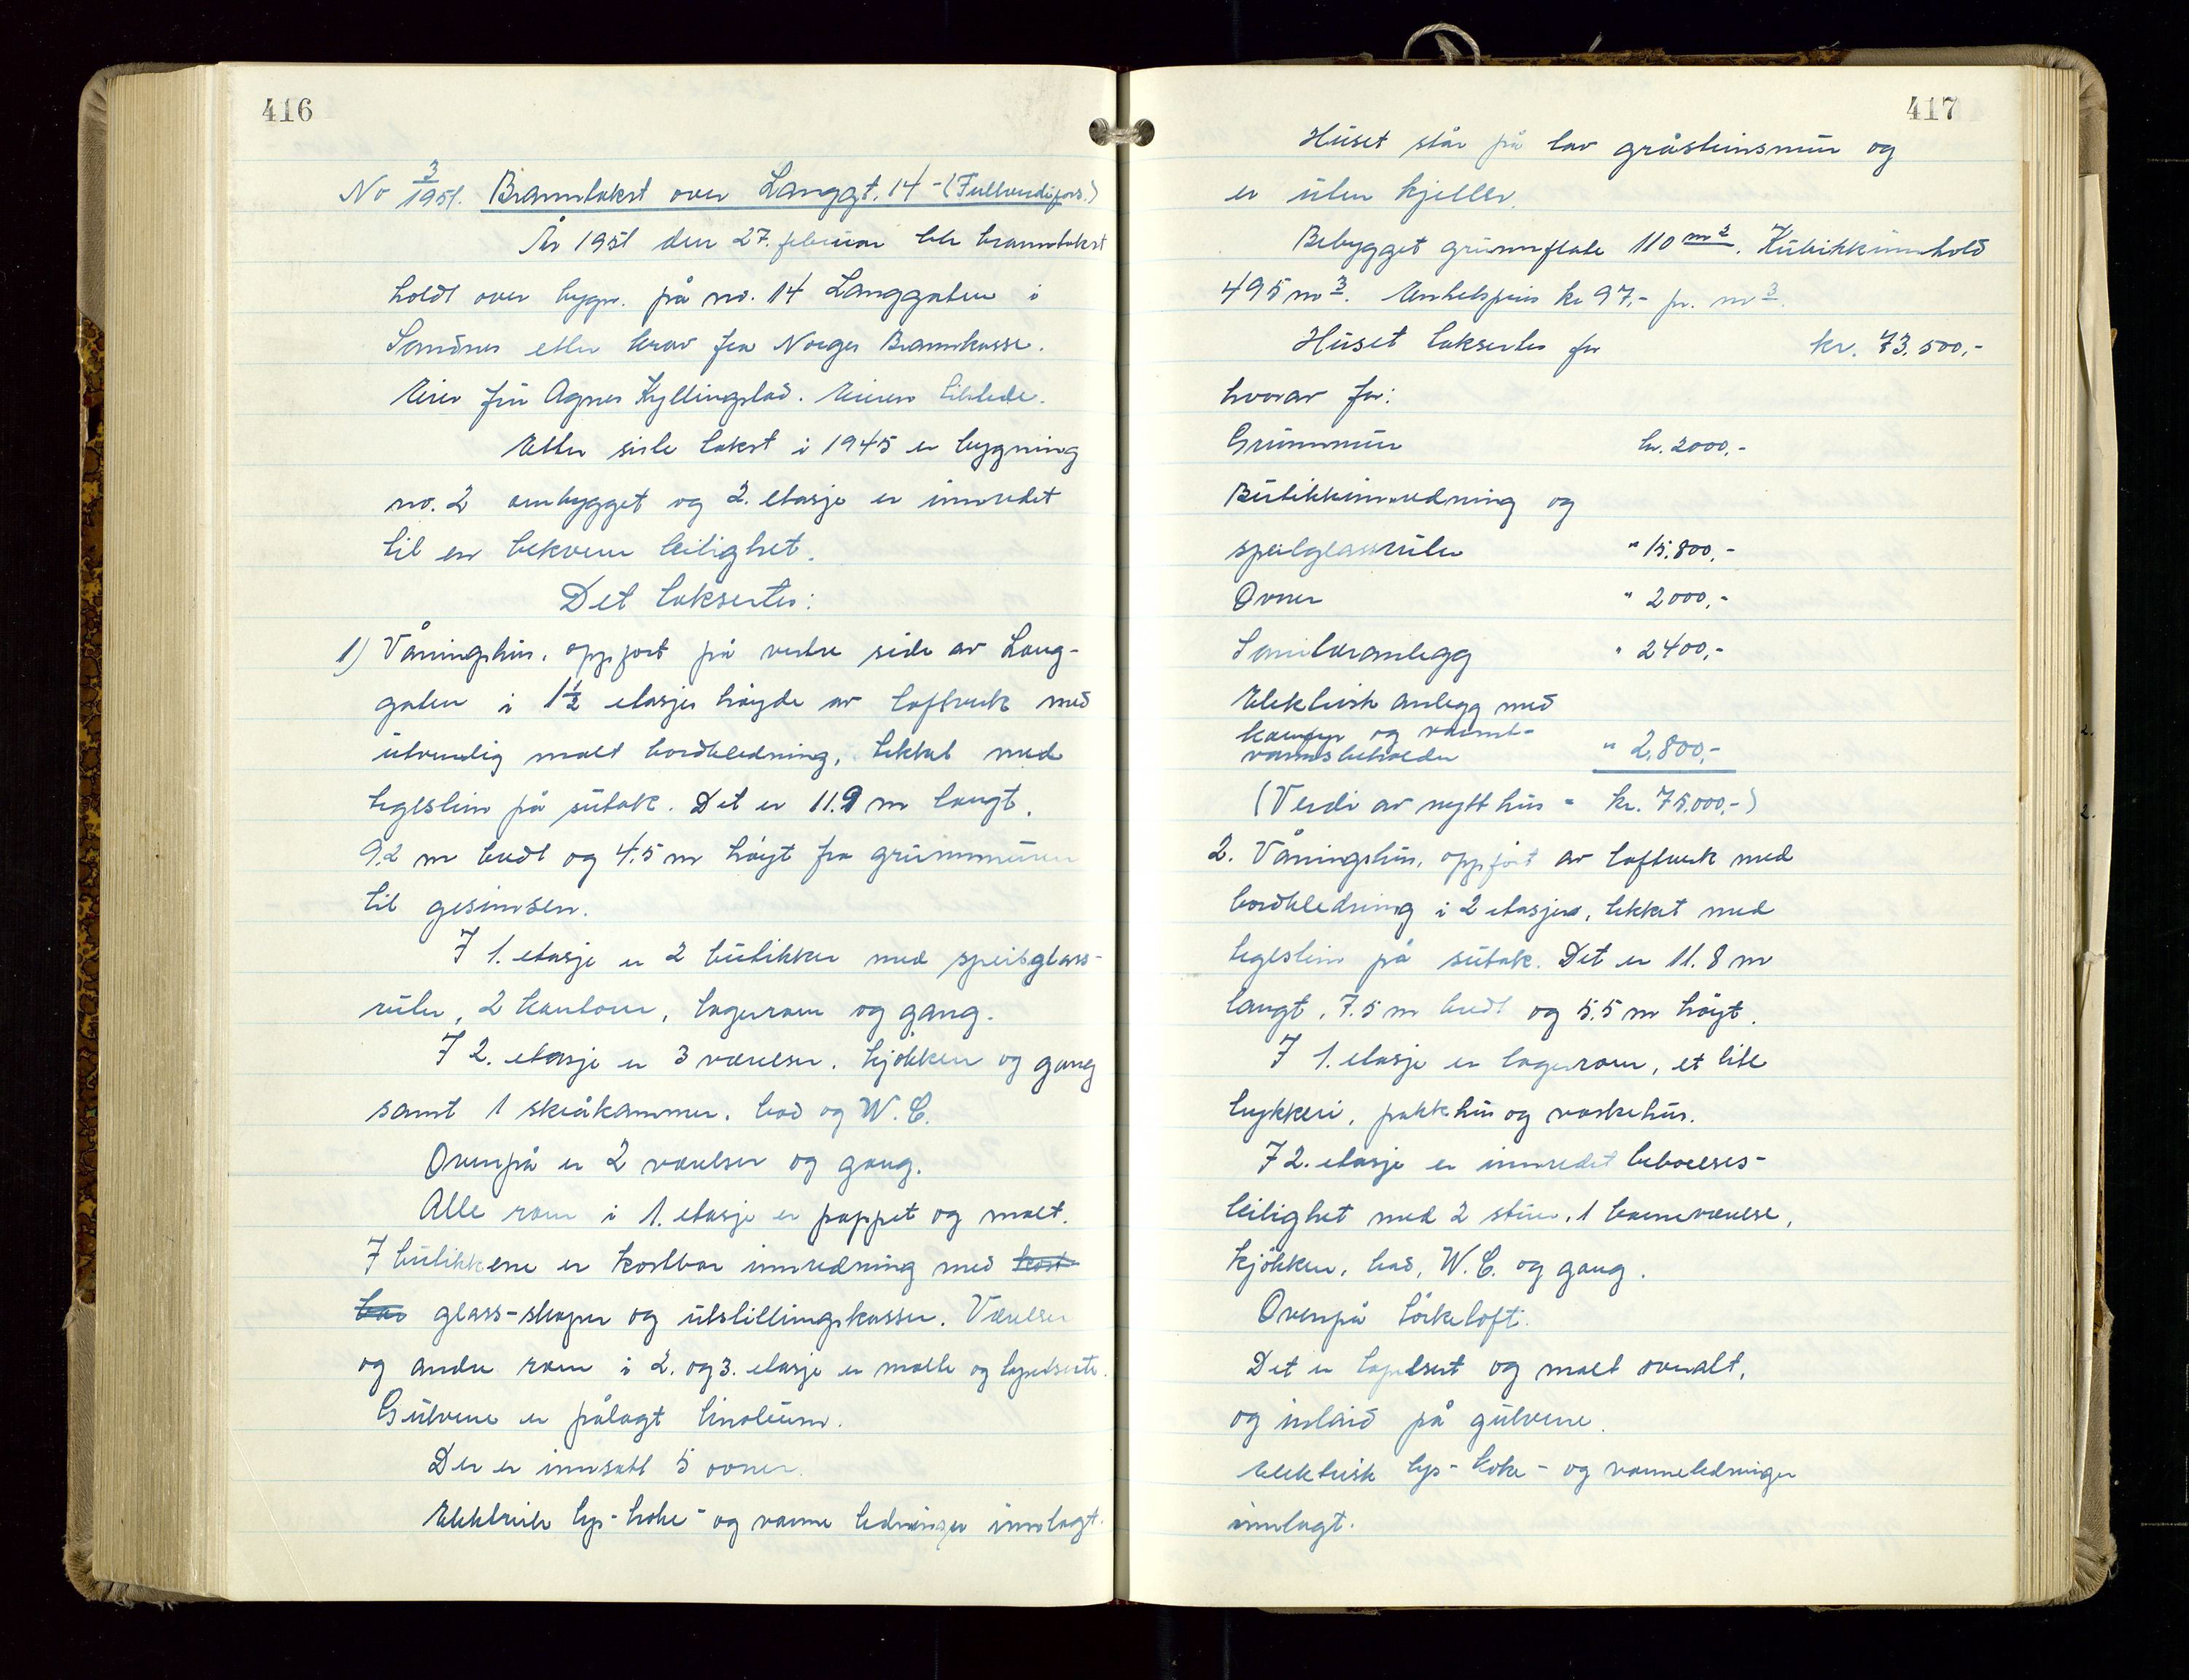 416
No 3/1951. Branntakst over Langgt. 14 - (Fullverdifors.)
År 1951 den 27. februar ble branntakst
holdt over bygn. på no. 14 Langgaten i
Sandnes etter krav fra Norges Brannkasse.
Eier fru Agnes Kyllingstad. Eieren tilstede.
Etter siste takst i 1945 er bygning
no. 2 ombygget og 2. etasje er innredet
til en bekvem leilighet.
Det takseres:
1) Våningshus, oppført på vestre side av Lang-
gaten i 1½ etasjes høyde av loftverk med
utvendig malt bordkledning, tekket med
teglstein på sutak. Det er 11.9 m langt,
9.2 m bredt og 4.5 m høyt fra grunnmuren
til gesimsen.
I 1. etasje er 2 butikker med speilglass-
ruter, 2 kontorer, lagerrom og gang.
I 2. etasje er 3 værelser, kjøkken og gang
samt 1 skråkammer, bad og W.C.
Ovenpå er 2 værelser og gang.
Alle rom i 1. etasje er pappet og malt.
I butikkene er kostbar innredning med kost-
bar glass-skaper og utstillingskasser. Værelser
og andre rom i 2. og 3. etasje er malte og tapetserte.
Gulvene er pålagt linoleum.
Der er innsatt 5 ovner.
Elektriske lys- koke- og varme ledninger innlagt.
417
Huset står på lav gråsteinsmur og
er uten kjeller.
Bebygget grunnflate 110 m². Kubikkinnhold
495 m³. Enhetspris kr 97,- pr. m³.
Huset takseres for kr. 73.500,-
hvorav for:
Grunnmur kr. 2000,-
Butikkinnredning og
speilglassruter " 15.800,-
Ovner " 2000,-
Sanitæranlegg " 2400,-
Elektrisk anlegg med
komfyr og varmt-
vannsbeholder " 2.800,-
(Verdi av nytt hus = kr. 75.000,-)
2. Våningshus, oppført av loftverk med
bordkledning i 2 etasjer, tekket med
teglstein på sutak. Det er 11.8 m
langt, 7.5 m bredt og 5.5 m høyt.
I 1. etasje er lagerrom, et lite
trykkeri, pakkhus og vaskehus.
I 2. etasje er innredet beboelses-
leilighet med 2 stuer, 1 barneværelse,
kjøkken, bad, W.C. og gang.
Ovenpå tørkeloft.
Det er tapetsert og malt overalt,
og inlaid på gulvene.
Elektrisk lys- koke- og varmeledninger
innlagt.